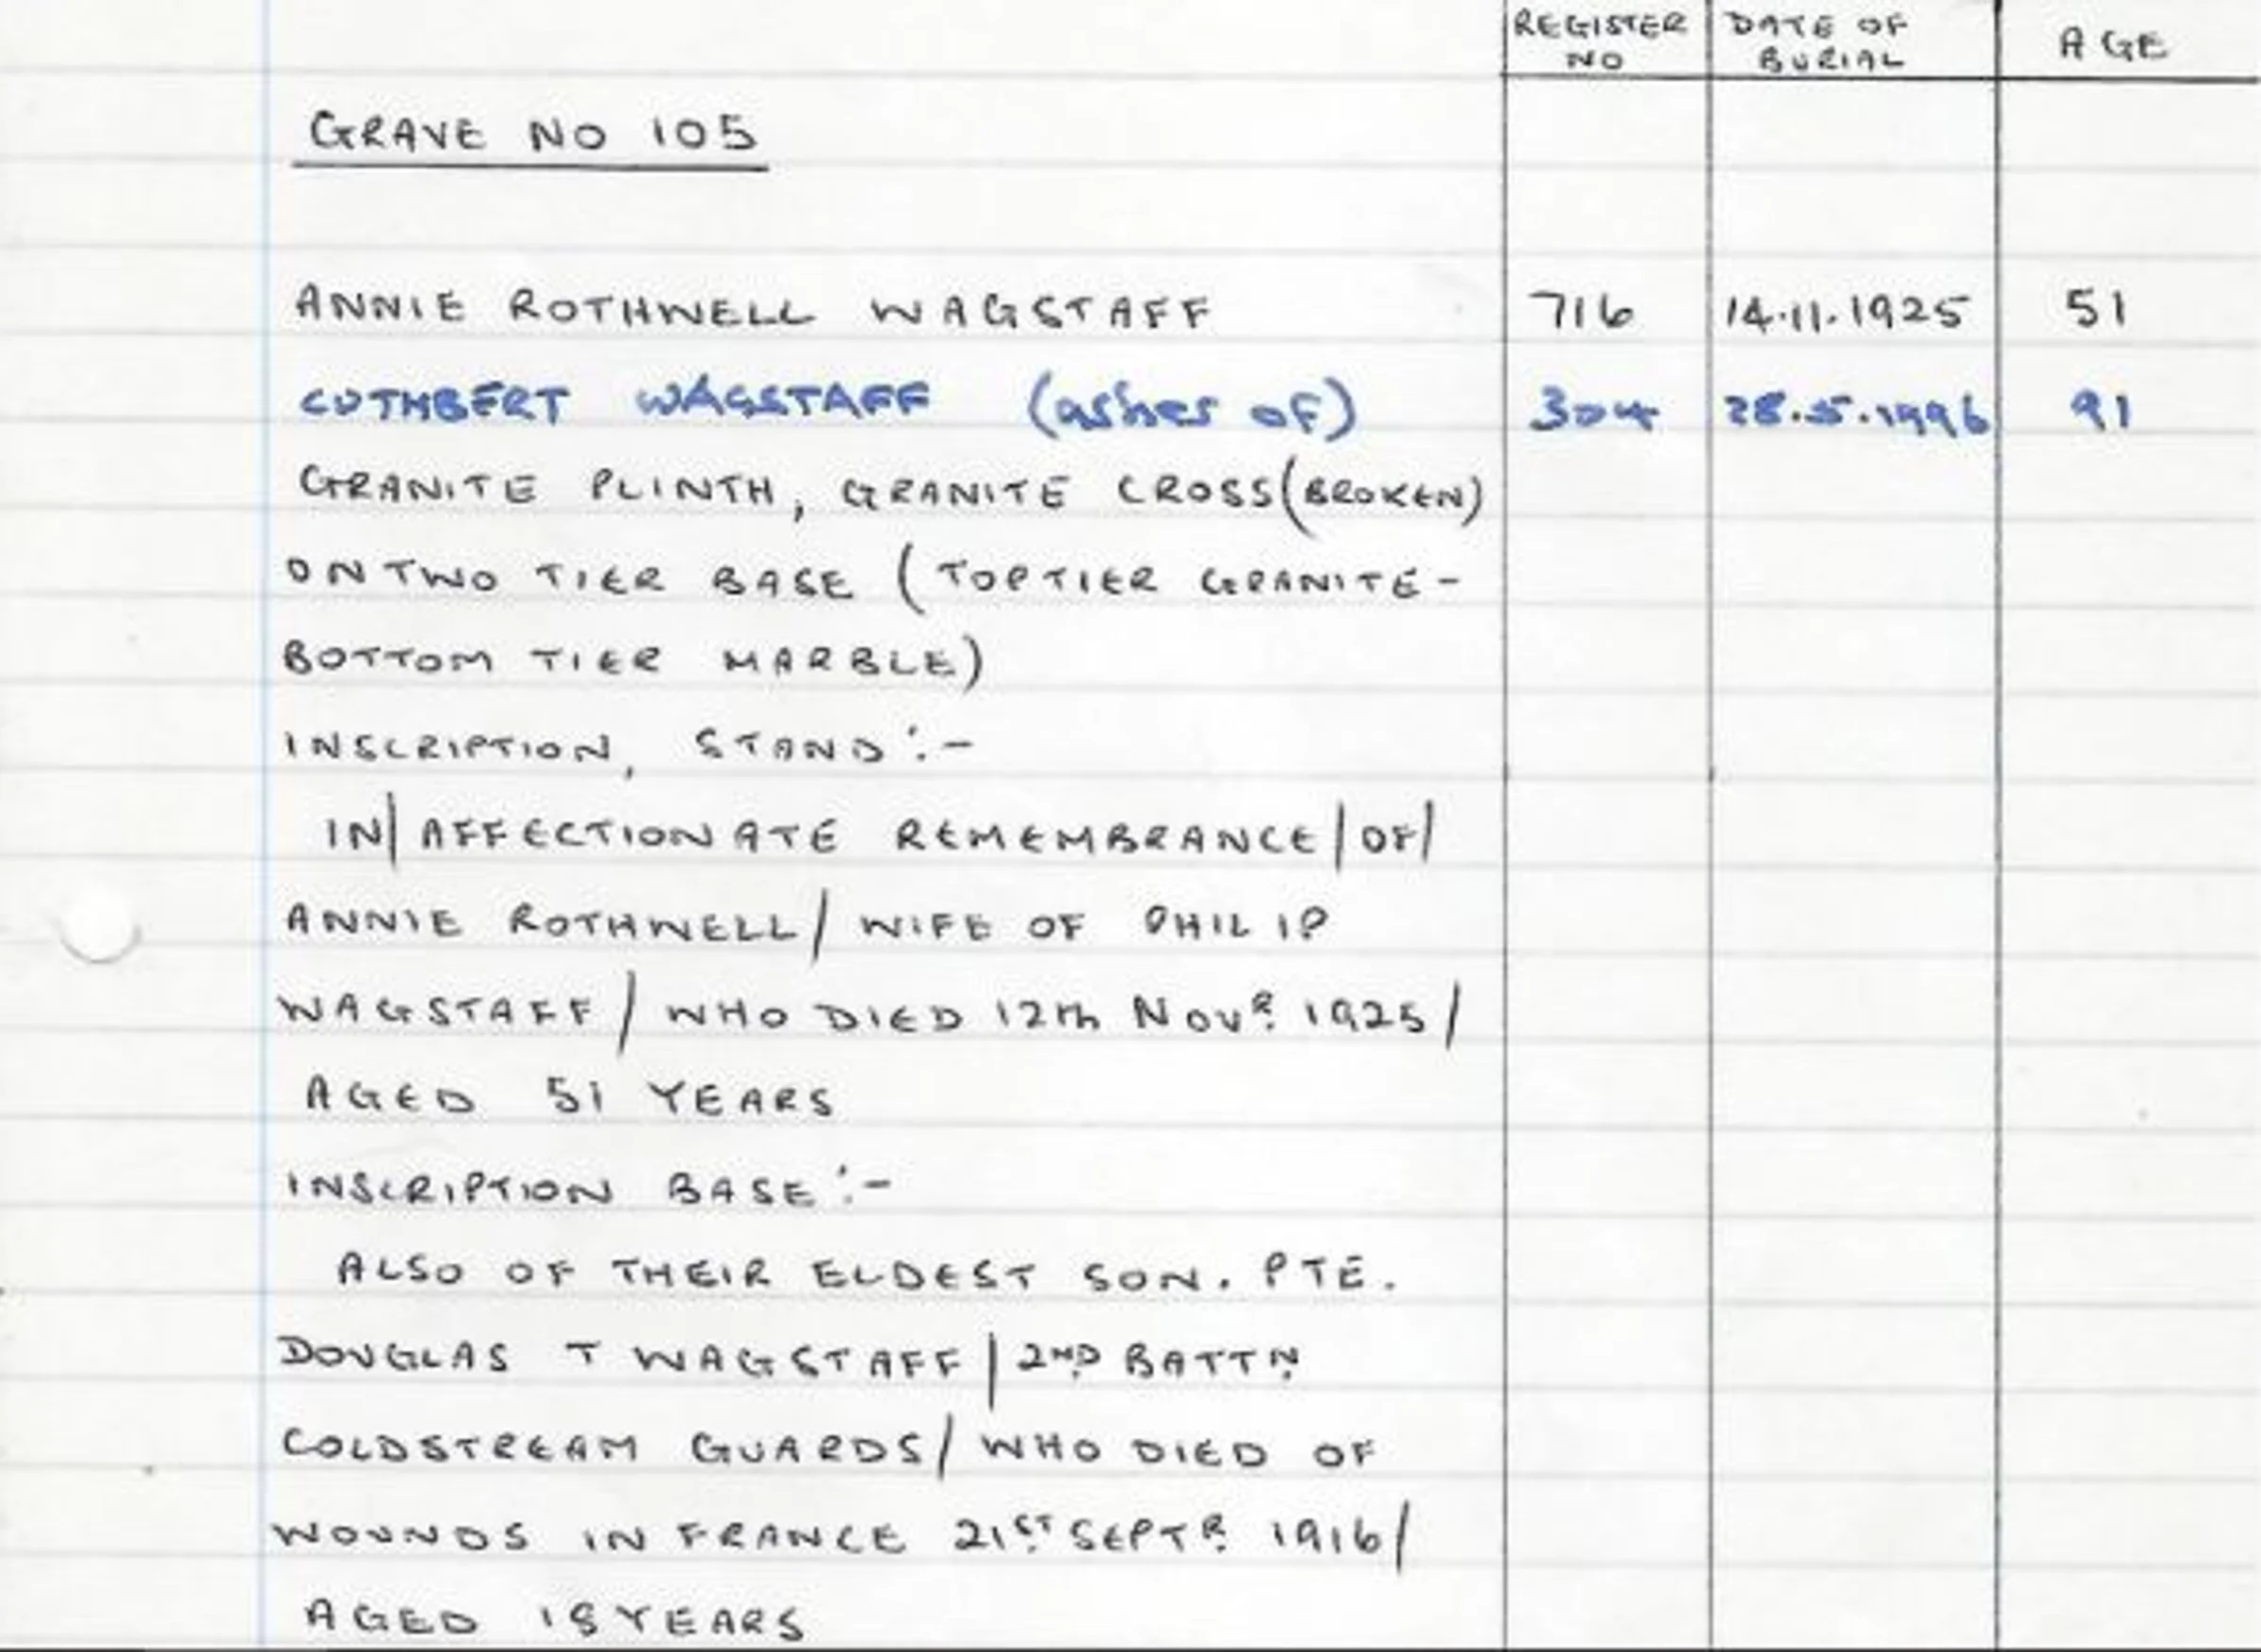 REGISTER NO
DATE OF BURIAL
AGE
GRAVE NO 105
ANNIE ROTHWELL WAGSTAFF 716 14.11.1925 51
CUTHBERT WAGSTAFF (ashes of) 304 28.5.1996 91
GRANITE PLINTH, GRANITE CROSS (BROKEN)
ON TWO TIER BASE (TOP TIER GRANITE -
BOTTOM TIER MARBLE)
INSCRIPTION, STAND :-
IN/ AFFECTIONATE REMEMBRANCE / OF /
ANNIE ROTHWELL / WIFE OF PHILIP
WAGSTAFF / WHO DIED 12th NOVR. 1925 /
AGED 51 YEARS
INSCRIPTION BASE :-
ALSO OF THEIR ELDEST SON. PTE.
DOUGLAS T WAGSTAFF / 2ND BATTN
COLDSTREAM GUARDS / WHO DIED OF
WOUNDS IN FRANCE 21ST SEPTR. 1916 /
AGED 18 YEARS